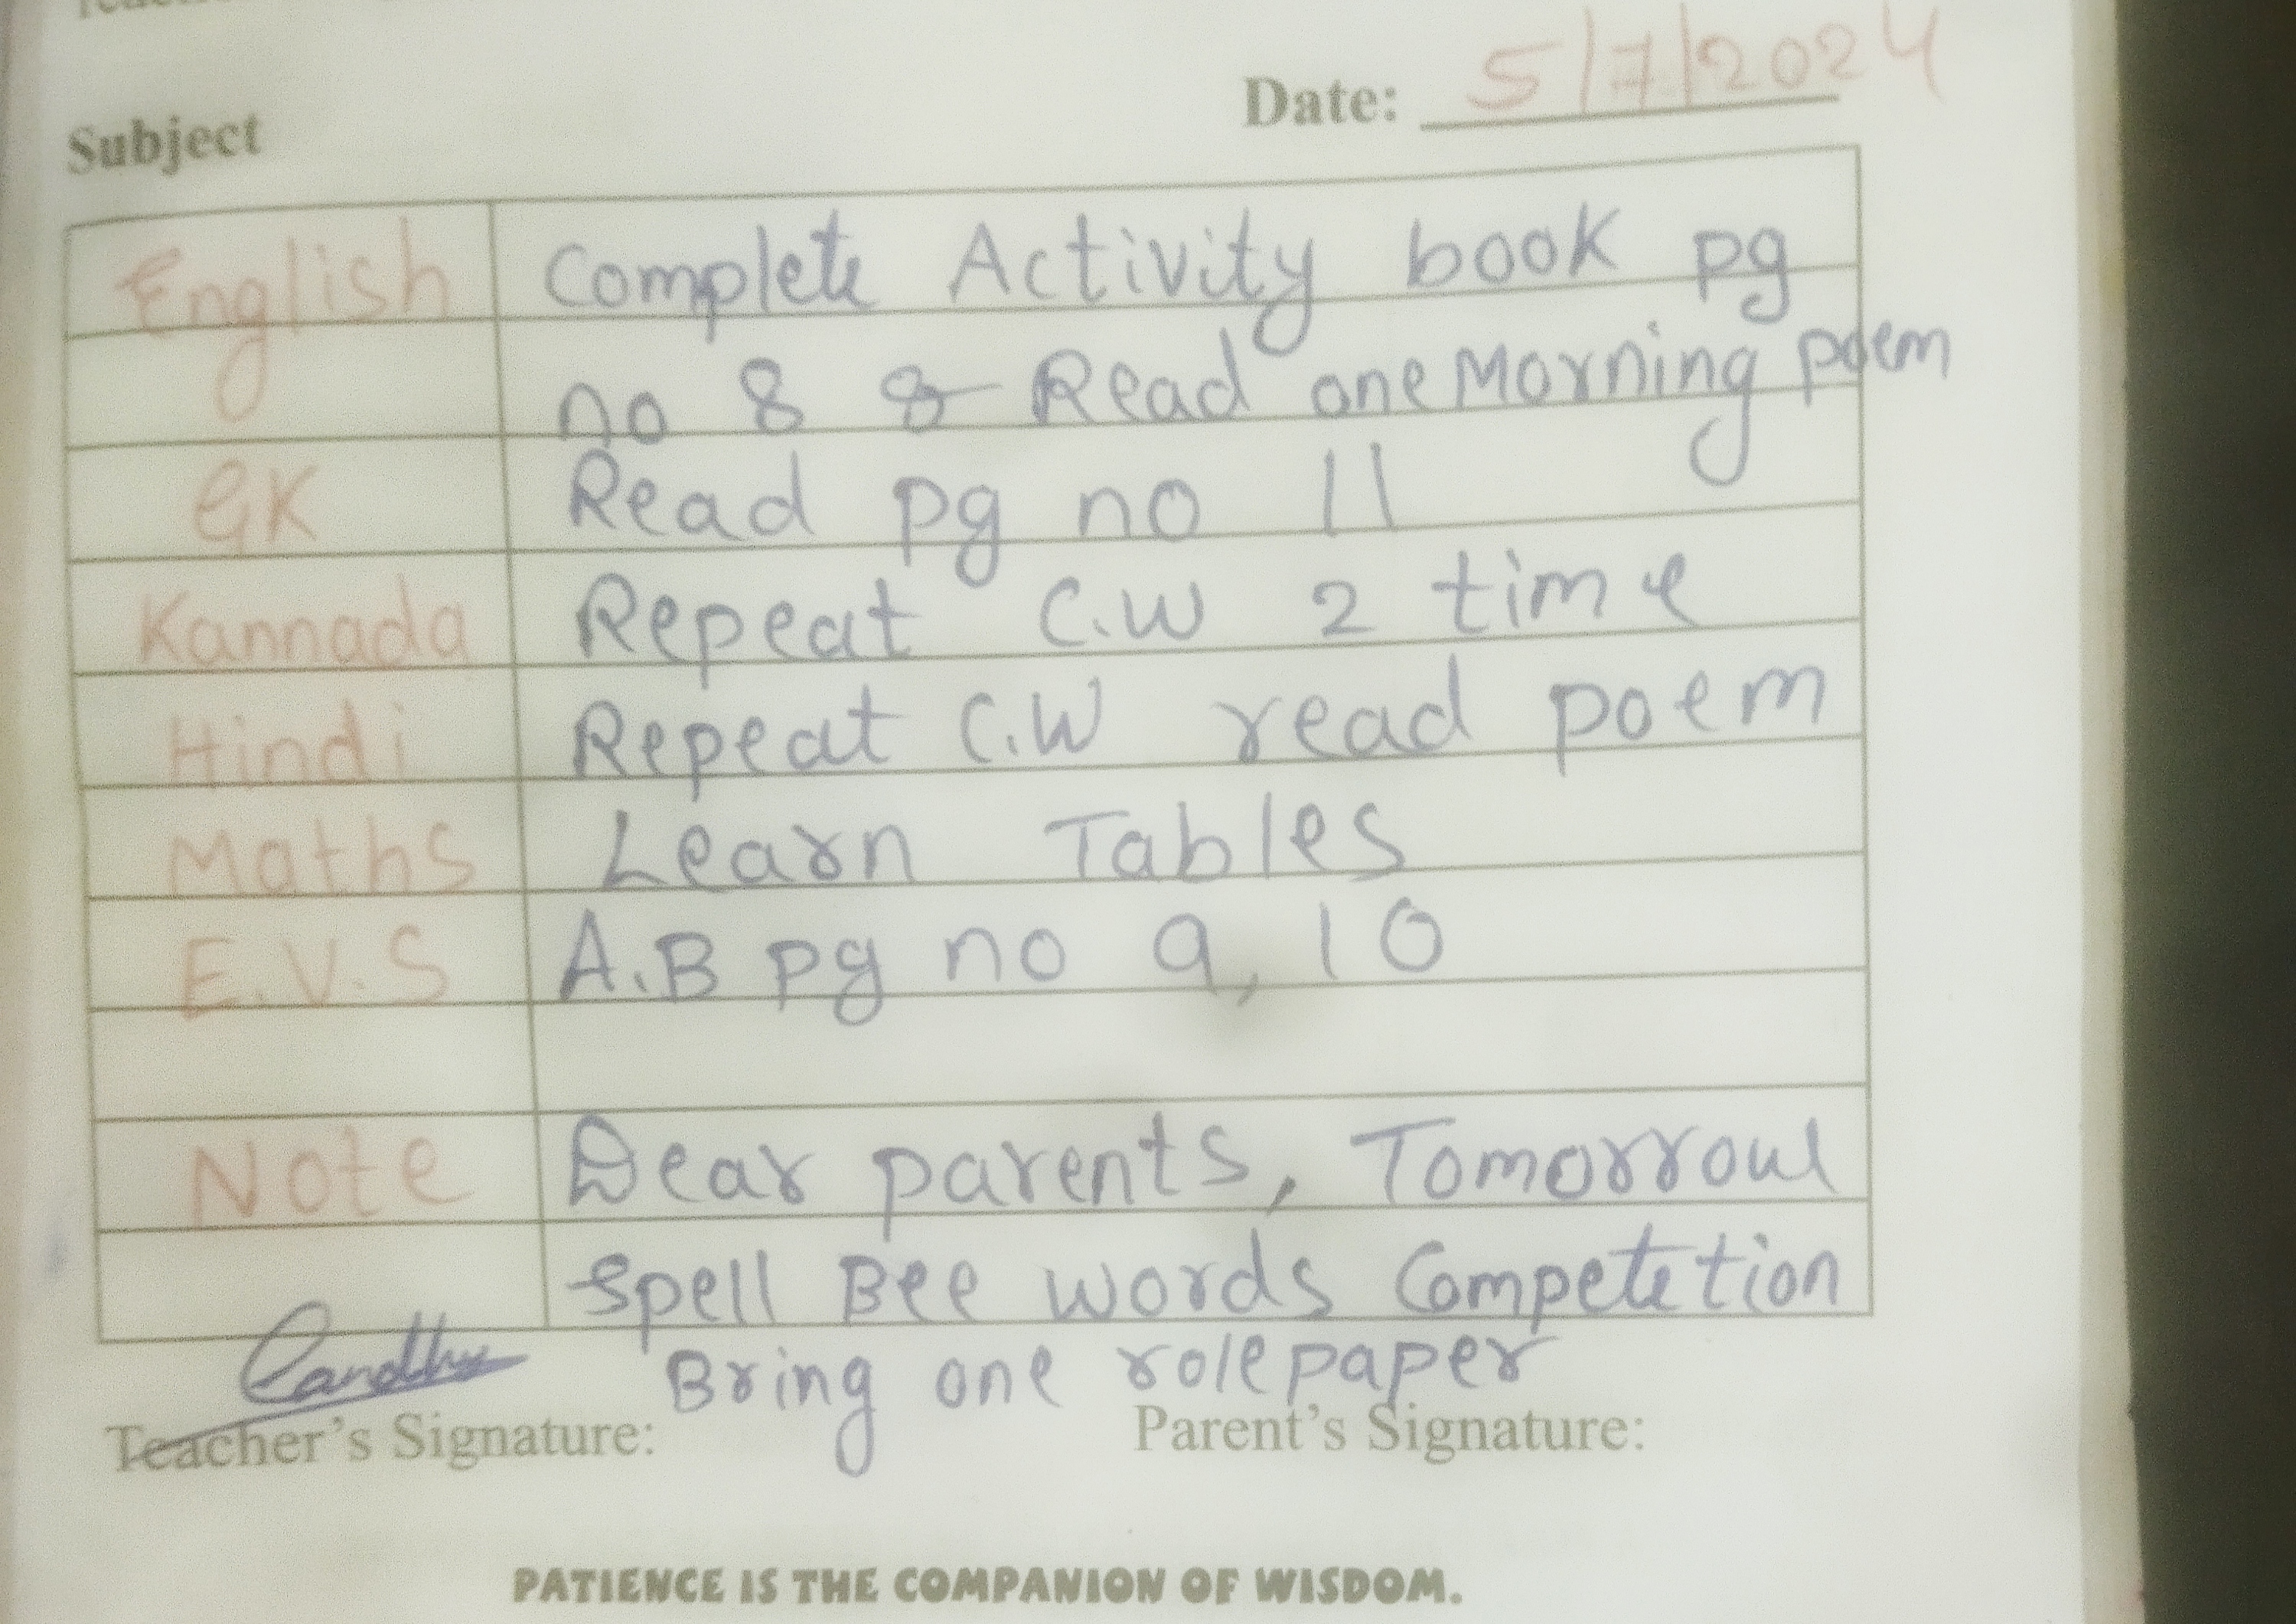 Date: 5/7/2024
Subject
English Complete Activity book pg
no 8 & Read one Morning poem
GK Read pg no 11
Kannada Repeat C.W 2 time
Hindi Repeat C.W read poem
Maths Learn Tables
E.V.S A.B pg no 9, 10
Note Dear parents, Tomorrow
Spell Bee words Competetion
Bring one role paper
Teacher's Signature: Parent's Signature:
PATIENCE IS THE COMPANION OF WISDOM.